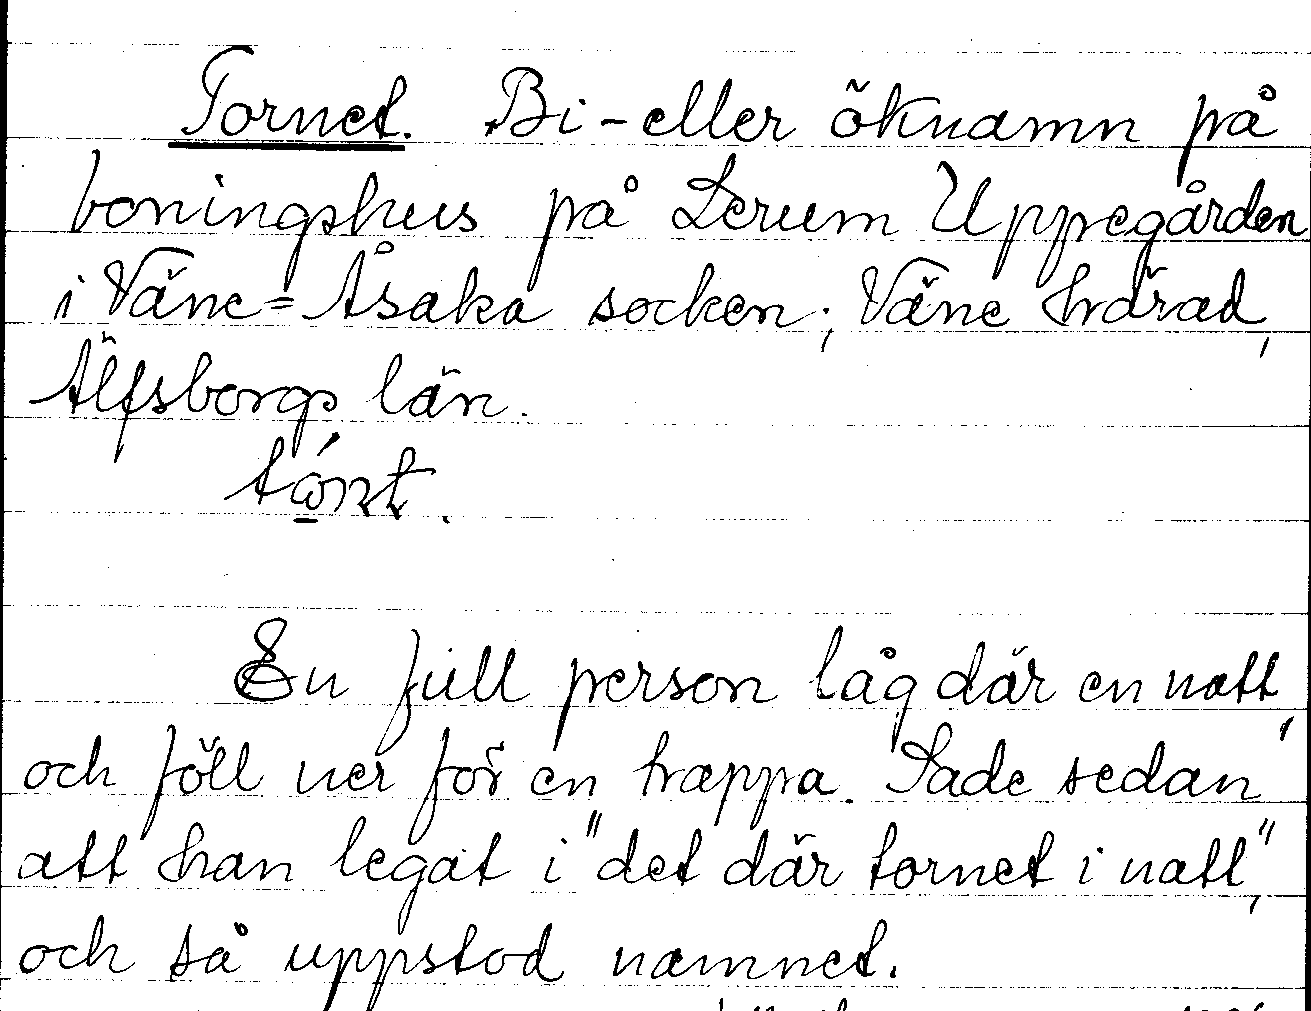 Tornet. Bi-eller öknamn på
boningshus på Lerum Uppegården
i Väne-Åsaka socken, Väne härad,
Älfsborgs län.
En full person låg där en natt,
och föll ner för en trappa. Sade sedan
att han legat i "det där tornet i natt",
och så uppstod namnet.